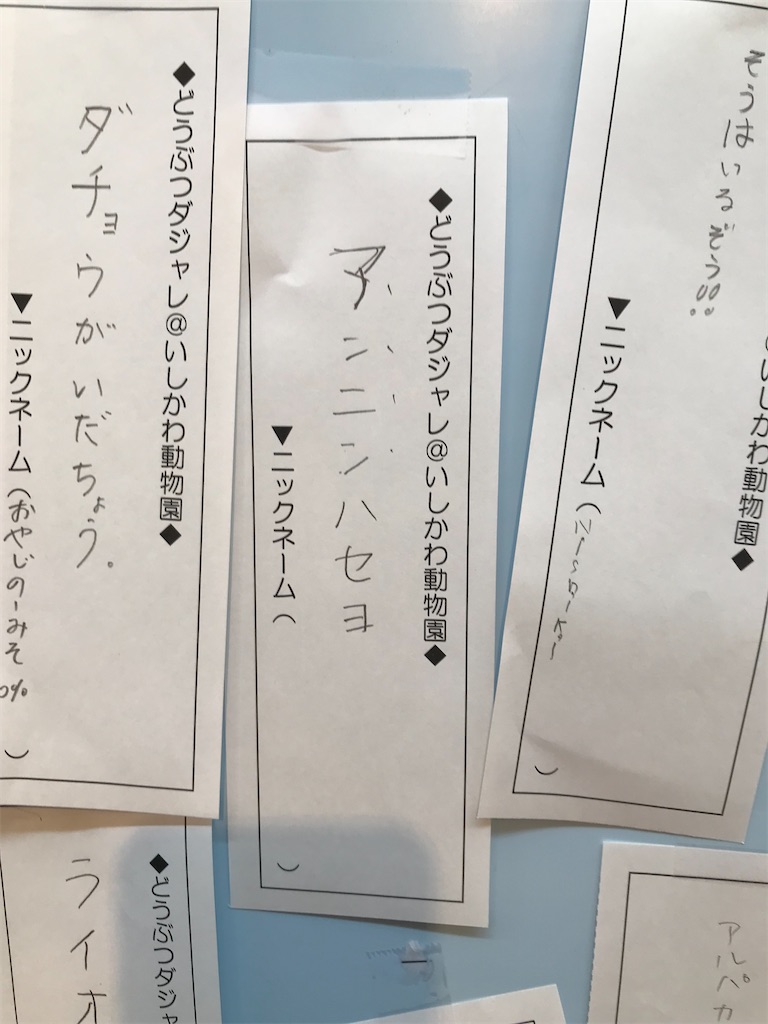 いしかわ動物園◆
そうはいるぞう!!
▼ニックネーム（ ）
◆どうぶつダジャレ@いしかわ動物園◆
アンニンハセヨ
▼ニックネーム（ ）
◆どうぶつダジャレ@いしかわ動物園◆
ダチョウがいだちょう。
▼ニックネーム（おやじのーみそ0%）
アルパカ
◆どうぶつダジャ
ライオ